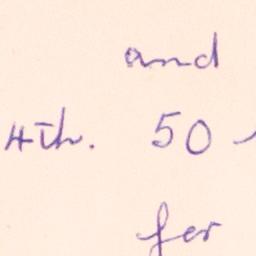 and
4th. 50 -
for